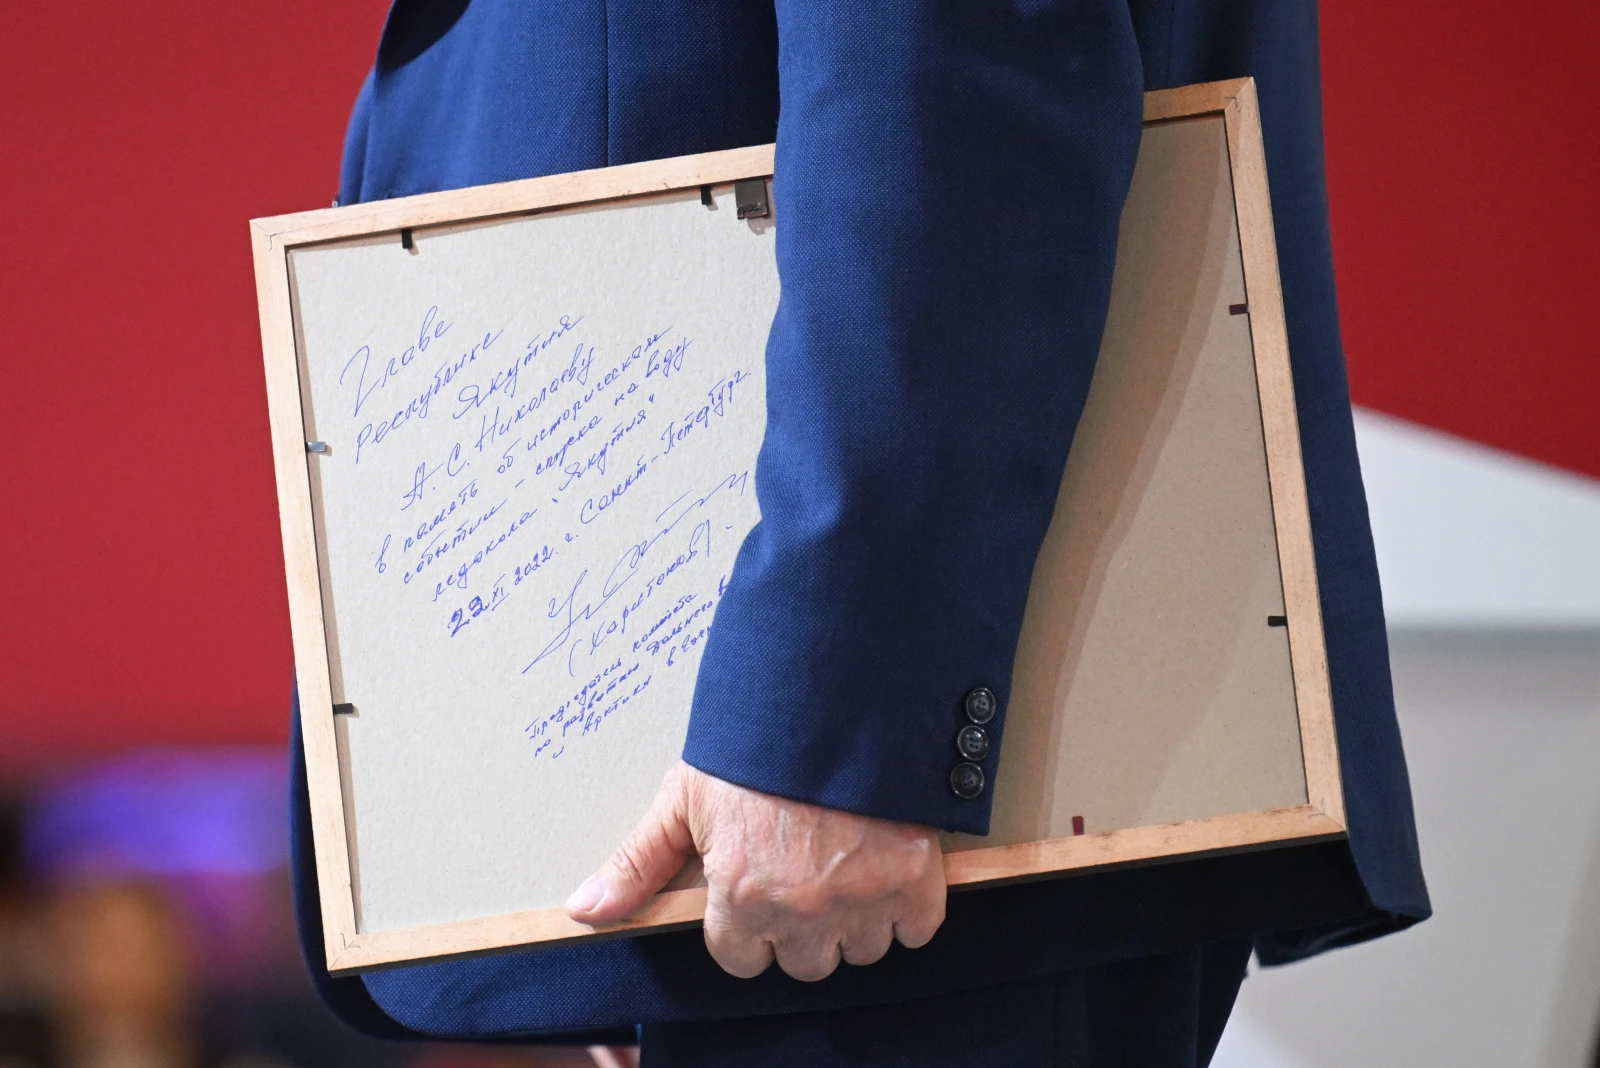 Главе
республике
Якутия
А. С. Николаеву
в память об историческом
событии - спуска на воду
ледокола "Якутия"
22 XI 2022. г. Санкт-Петербург.
(Харитонов).
Председатель комитета
по развитию Дальнего В
и Арктики в